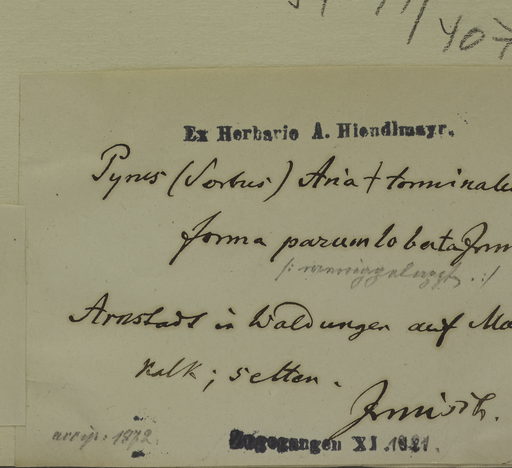 407
Ex Herbario A. Hiendlmayr.
Pyrus (Sorbus) Aria + torminalis
forma parum lobata Irm
/: weniggelappt. :/
Arnstadt in Waldungen auf Mu
kalk; selten.
Irmisch.
accip. 1872
Zugegangen XI. 1921.